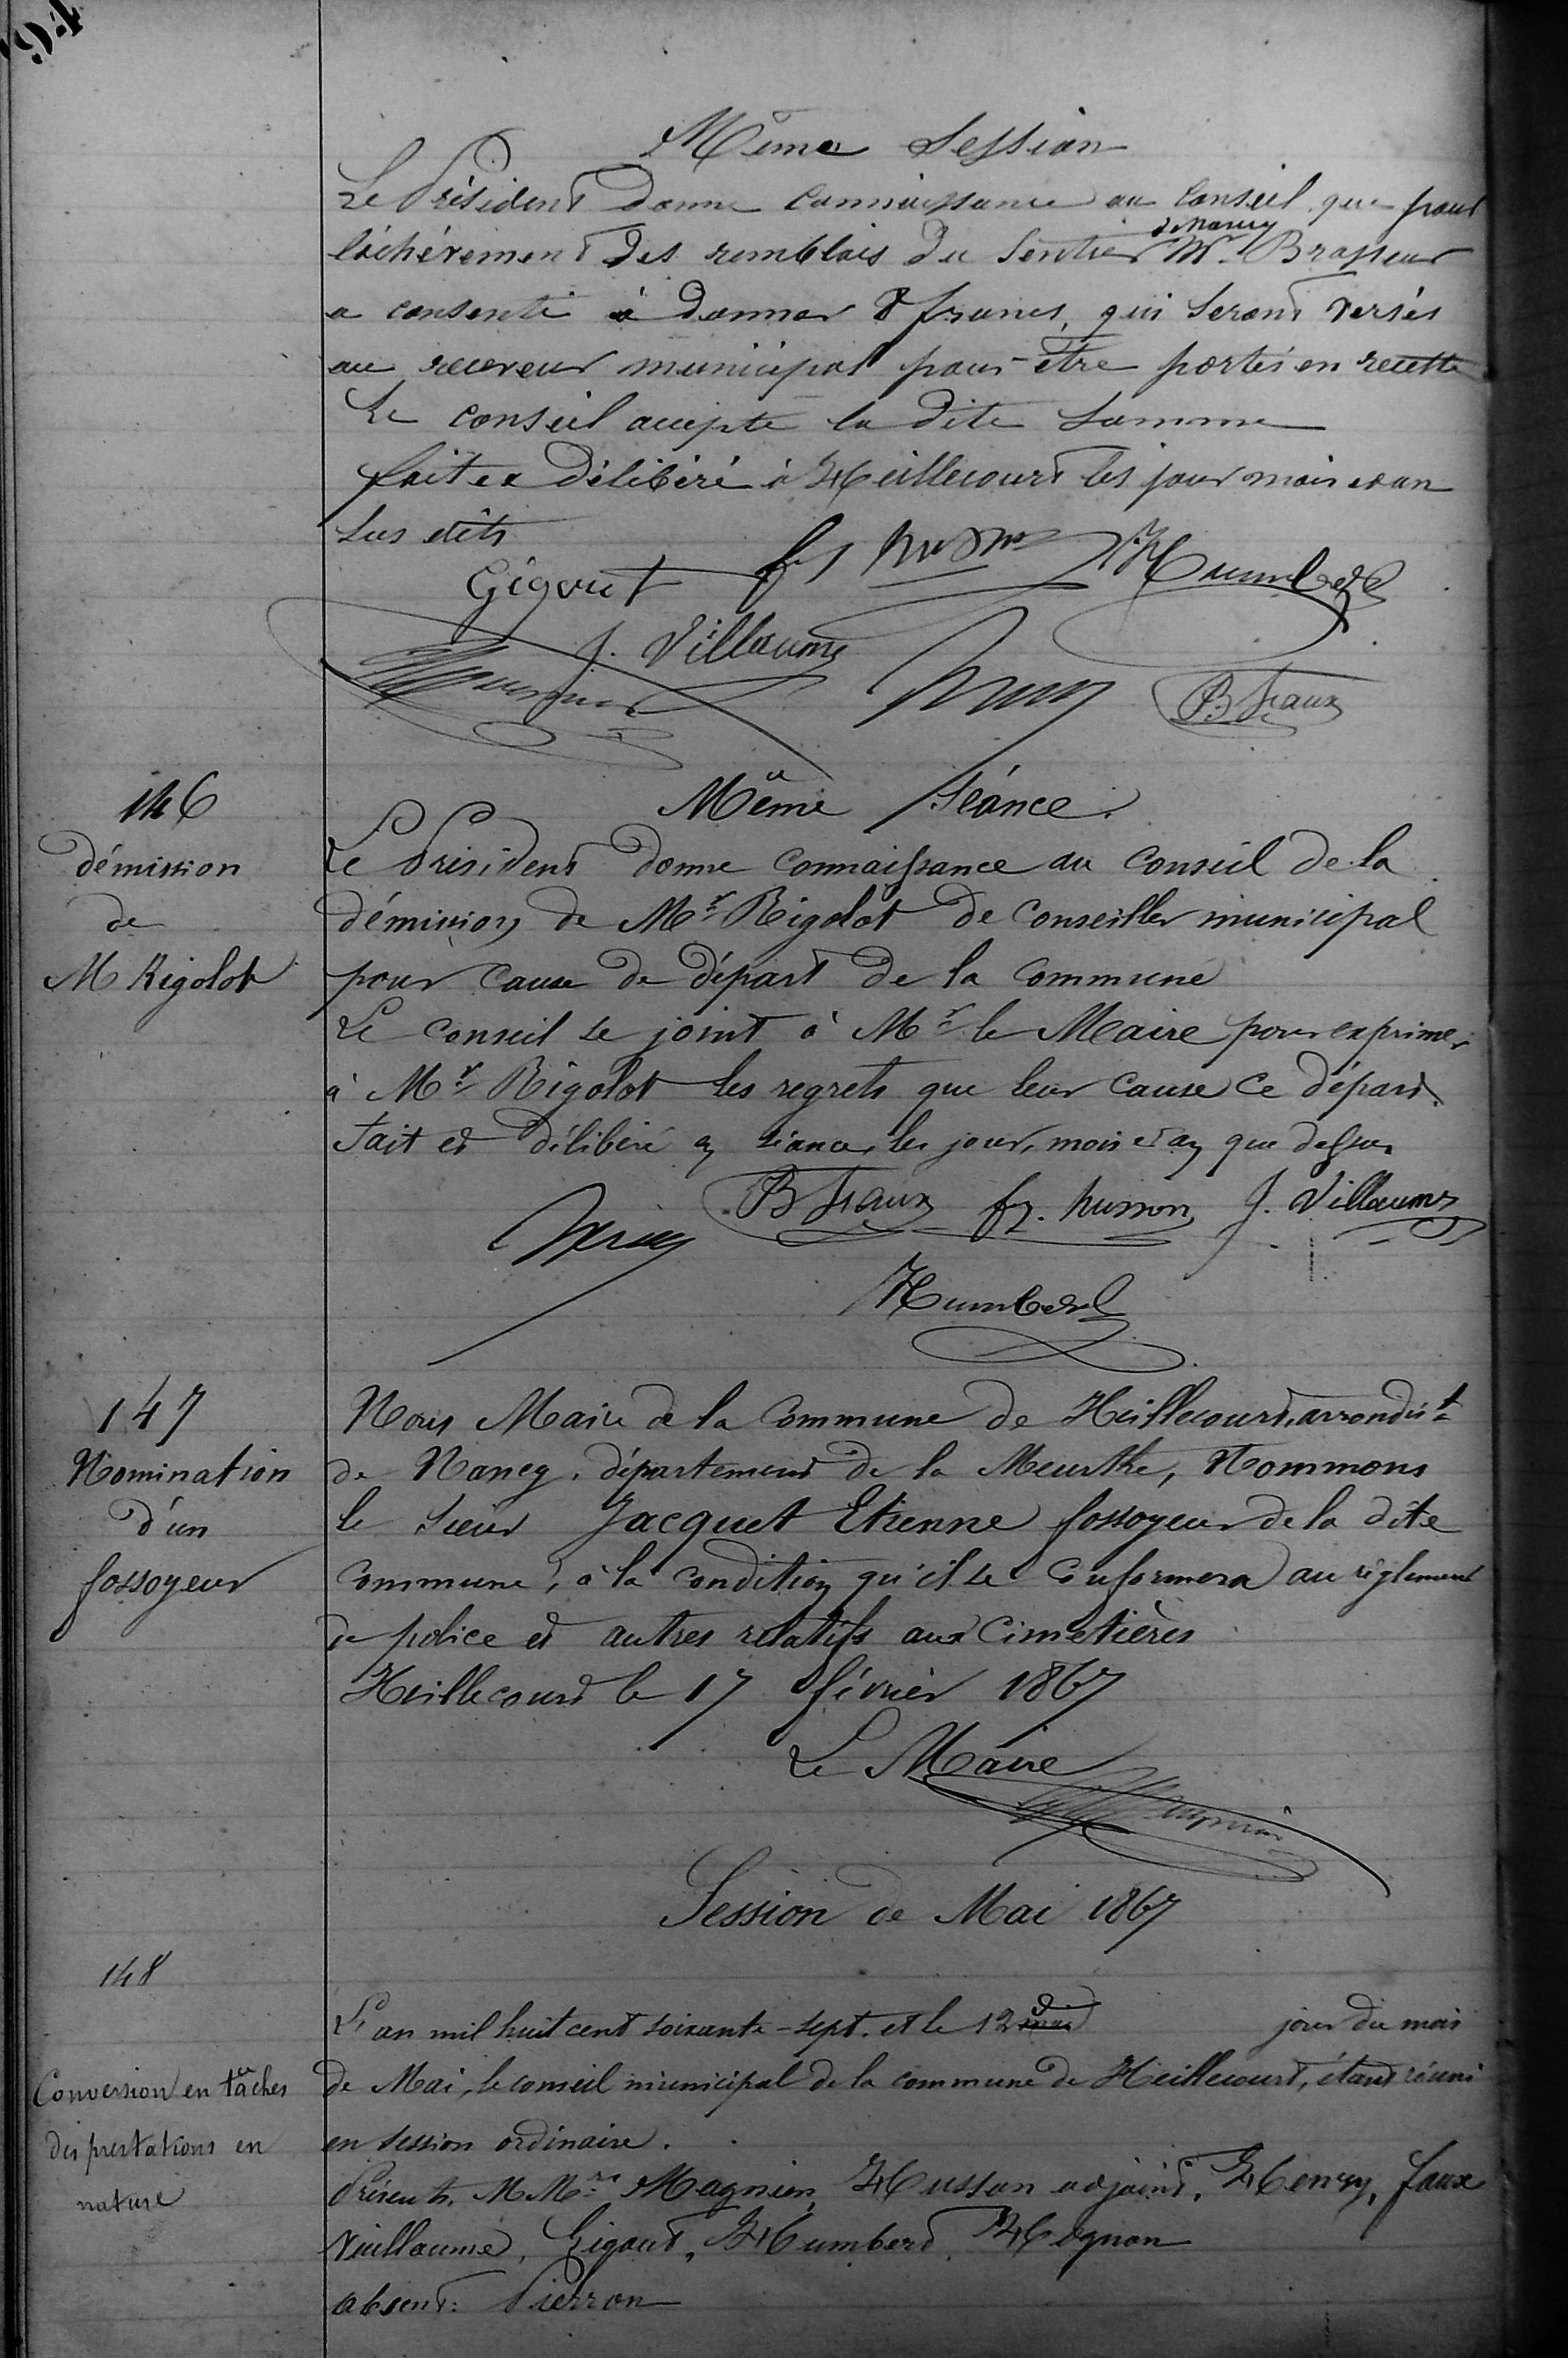 Même Session
Le Président donne connaissance au Conseil que pour
de Nancy
l'achèvement des remblais du Sentier Mr Brasseur
a consenti à donner 8 francs, qui seront versés
au receveur municipal pour être portés en recette
Le conseil accepte la dite somme
fait et délibéré à Heillecourt les jour mois et an
sus dits
Gigout Humbert
J. Villaume
B faux
146
démission
de
M Rigolot
Même Séance
Le Président donne connaissance au Conseil de la
démission de Mr Rigolot de Conseiller municipal
pour cause de départ de la Commune
Le Conseil se joint à Mr le Maire pour exprimer
à Mr Rigolot les regrets que leur cause ce départ.
Fait et délibéré en séance les jour, mois et an que dessus
B faux fs. husson J. Villaume
Humbert
147
Nomination
d'un
fossoyeur
Nous Maire de la Commune de Heillecourt, arrondist
de Nancy, département de la Meurthe, Nommons
le Sieur Jacquet Etienne fossoyeur de la dite
Commune, à la condition qu'il se conformera au règlement
de police et autres relatifs aux Cimetières
Heillecourt le 17 février 1867
Le Maire
Magnien
Session de Mai 1867
148
Conversion en tâches
des prestations en
nature
L'an mil huit cent soixante-sept. et le 12 jour du mois
de Mai, le conseil municipal de la commune de Heillecourt, étant réuni
en session ordinaire.
Présents. MMrs Magnien, Husson adjoint, Henry, faux
Vuillaume, Gigout, Humbert, Hognon
absent: Pierron